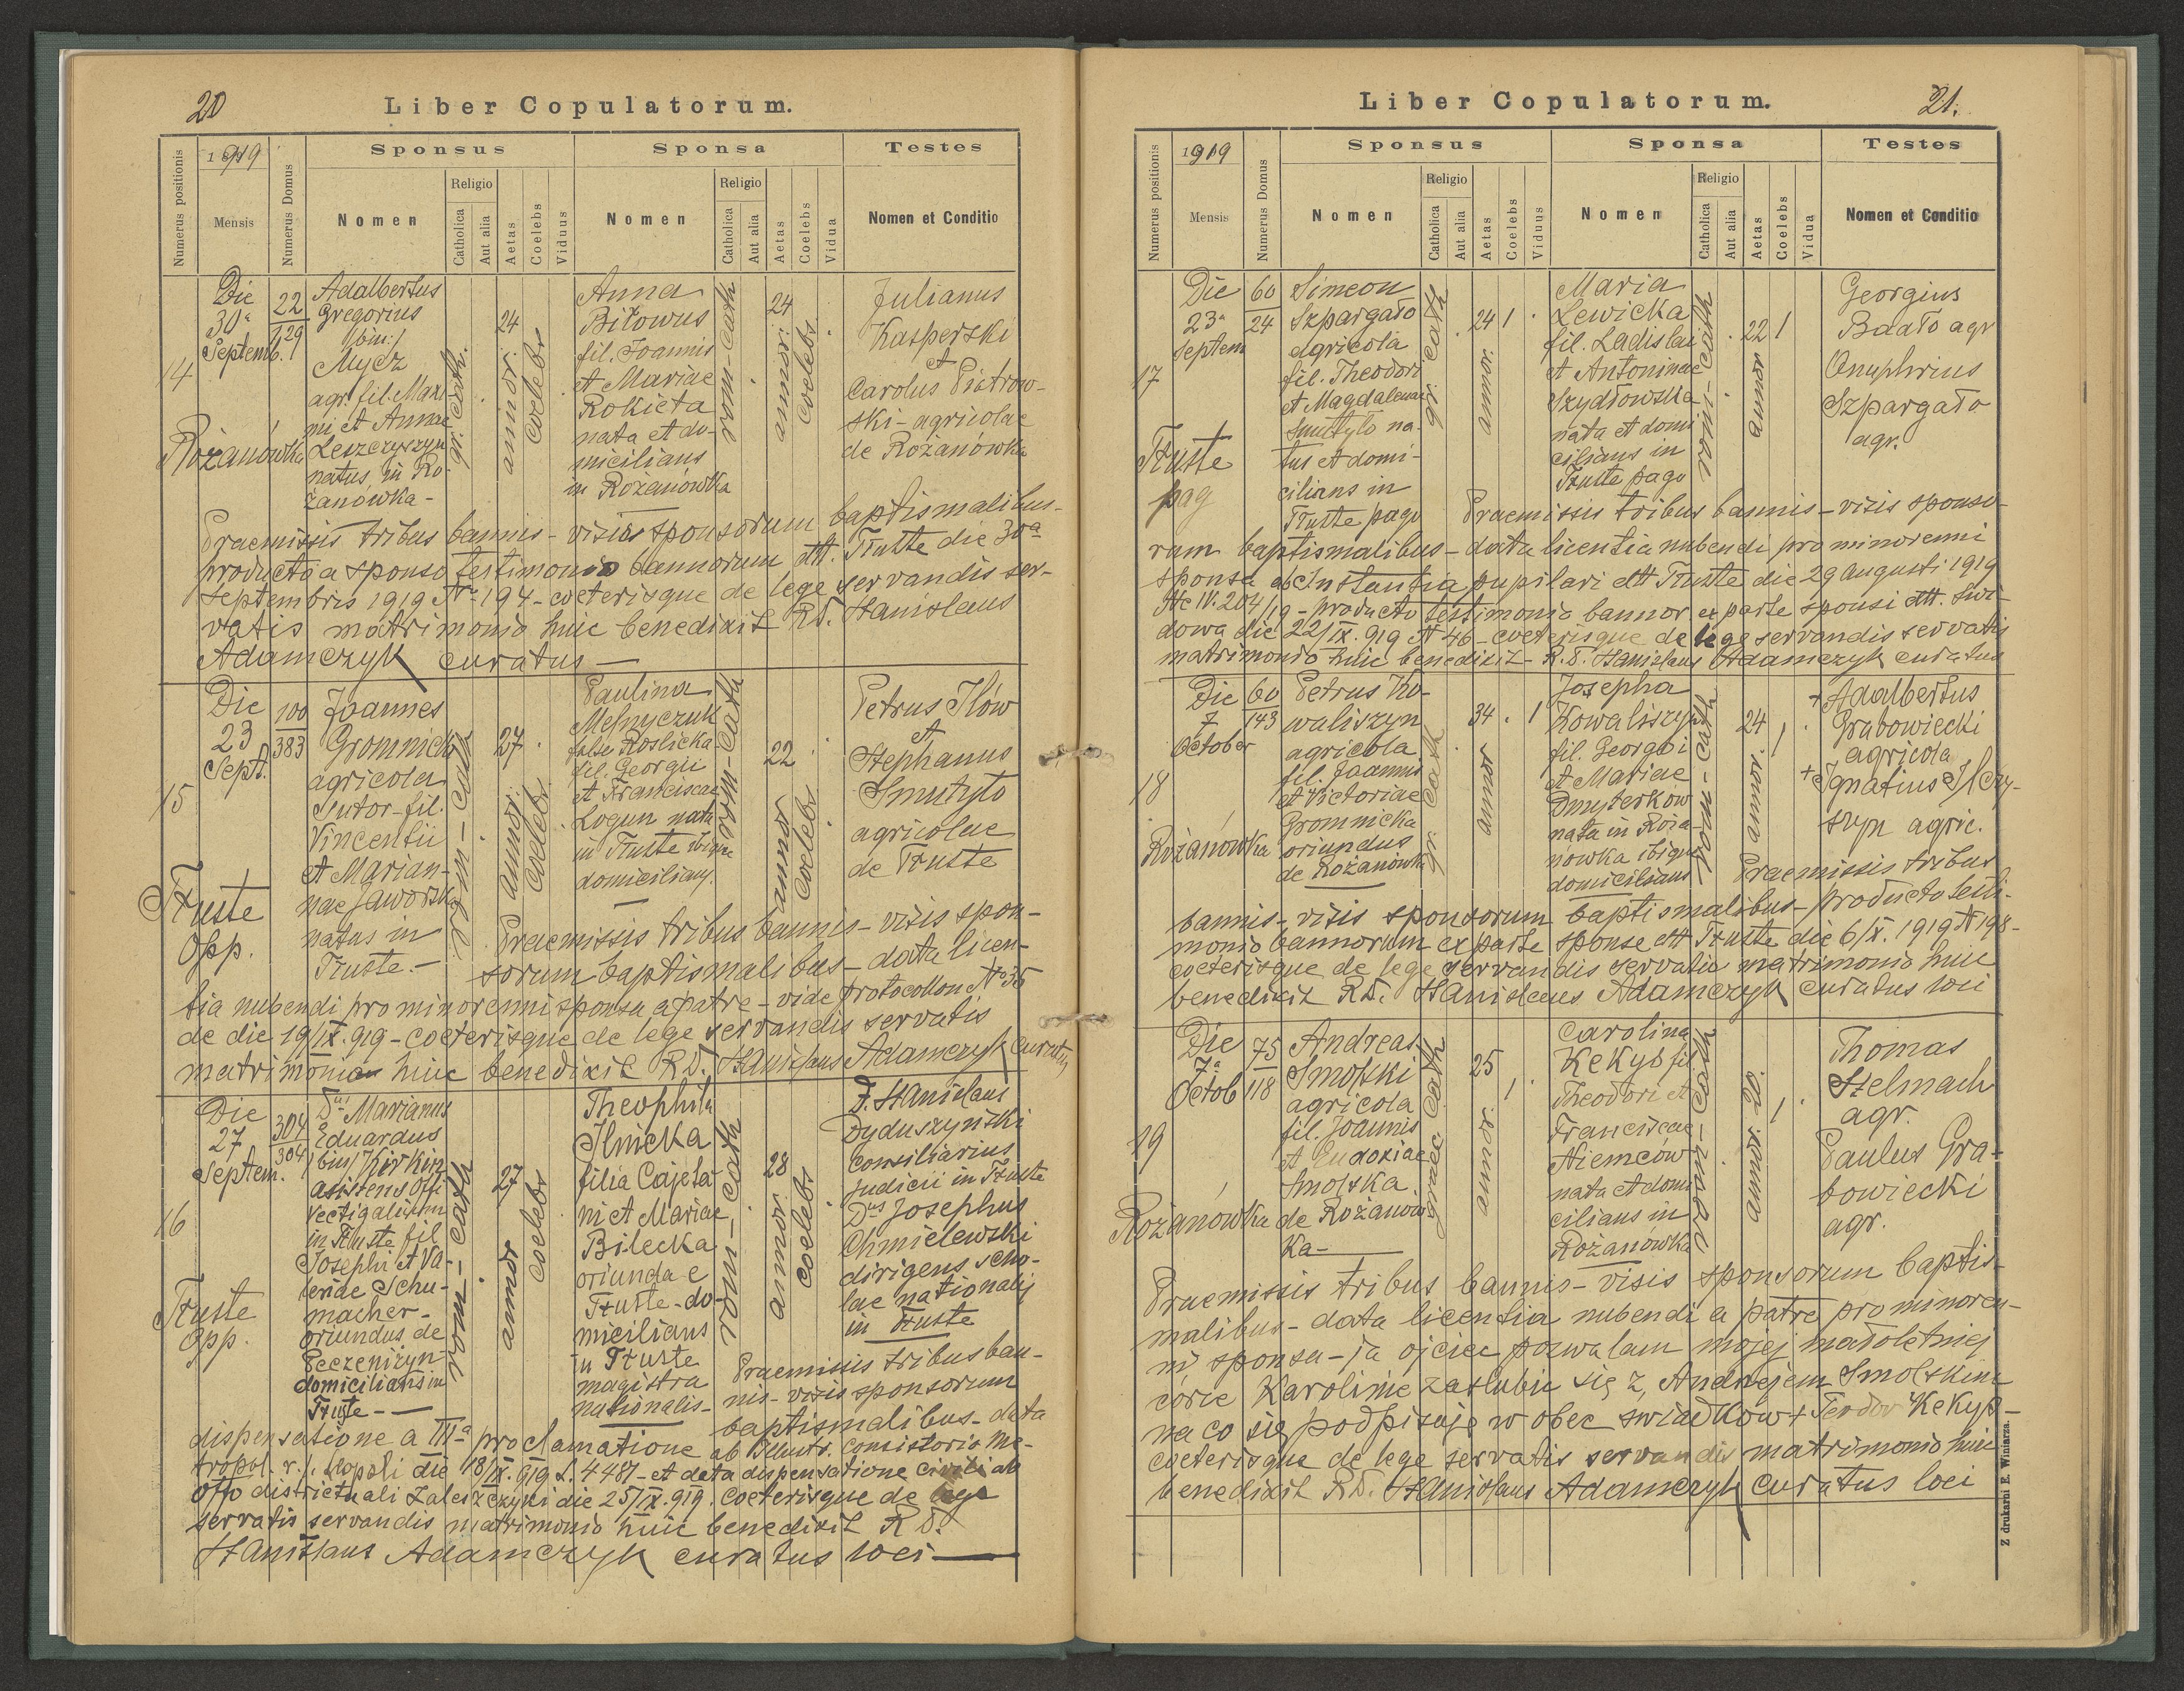 20
Liber Copulatorum.
1919
Numerus positionis
Mensis
Numerus Domus
Sponsus
Nomen
Religio
Catholica
Aut alia
Aetas
Coelebs
Viduus
Sponsa
Nomen
Religio
Catholica
Aut alia
Aetas
Coelebs
Vidua
Testes
Nomen et Conditio
14
Różanówka
Die
30a
Septemb.
22
129
Adalbertus
Gregorius
/bin:/
Mycz
agr. fil. Maxi
mi et Annae
Leszczyszyn
natus in Ro-
żanówka -
gr. cath.
24
annor.
coelebs
Anna
Bitowus
fil. Joannis
et Mariae
Rokieta
nata et do-
micilians
in Rożanówka
rom-cath
24
annor.
coelebs
Julianus
Kasperski
et
Carolus Piatrow-
ski - agricolae
de Rożanówka
Praemissis tribus bannis - visis sponsorum baptismalibus-
producto a sponso testimonio bannorum dtt. Tłuste die 30a
Septembris 1919 No 194 - coeterisque de lege servandis ser-
vatis matrimonio huic benedixit R.D. Stanislaus
Adamczyk curatus —
15
Tłuste
opp.
Die
23
Sept.
100
383
Joannes
Gromnicki
agricola
Sutor - fil.
Vincentii
et Marian-
nae Jaworska
natus in
Tłuste. -
rom - cath
27
annor.
coelebs
Paulina
Melnyczuk
false Roslicka
fil. Georgii
et Franciscae
Logun nata
in Tłuste ibique
domicilians.
rom-cath
22
annor
coelebs
Petrus Ilów
et
Stephanus
Smutyło
agricolae
de Tłuste
Praemissis tribus bannis - visis spon-
sorum baptismalibus - data licen-
tia nubendi pro minorenni sponsa a patre - vide protocollon No 35
de die 19/IX.919 - coeterisque de lege servandis servatis
matrimonio huic benedixit R.D. Stanislaus Adamczyk curatus
16
Tłuste
opp.
Die
27
Septem.
304
304
Dus Marianus
Eduardus
/bin/ Kirkin
asistens offi
vectigalium
in Tłuste fil
Josephi et Va-
leriae Schu-
macher -
oriundus de
Peczeniżyn
domicilians in
Tłuste - —
rom - cath
27
annor
coelebs
Theophila
Ilnicka
filia Cajeta
ni et Mariae
Bilecka
oriunda e
Tłuste - do-
micilians
in Tłuste
magistra
nationalis -
rom - cath
28
annor.
coelebs
D. Stanislaus
Dyduszyński
consiliarius
judicii in Tłuste
Dus Josephus
Chmielewski
dirigens scho-
lae nationalis
in Tłuste
Praemissis tribus ban-
nis - visis sponsorum
baptismalibus - data
dispensatione a IIIa proclamatione ab Illustr. Consistorio Me-
tropol. r. l. Leopoli die 18/IX.919 L. 4481 - et data dispensatione civili ab
offo districtuali Zaleszczyki die 25/IX.919. coeterisque de lege
servatis servandis matrimonio huic benedixit R.D.
Stanislaus Adamczyk curatus loci —
21.
Liber Copulatorum.
1919
Numerus positionis
Mensis
Numerus Domus
Sponsus
Nomen
Religio
Catholica
Aut alia
Aetas
Coelebs
Viduus
Sponsa
Nomen
Religio
Catholica
Aut alia
Aetas
Coelebs
Vidua
Testes
Nomen et Conditio
17
Tłuste
pag
Die
23a
Septem
60
24
Simeon
Szpargało
agricola
fil. Theodori
et Magdalenae
Smutyło na-
tus et domi-
cilians in
Tłuste pago
gr. cath
24
annor.
Maria
Lewicka
fil. Ladislai
et Antoninae
Szydłowska
nata et domi
cilians in
Tłuste pago
rom-cath
22
annor
Georgius
Baało agr
Onuphrius
Szpargało
agr.
Praemissis tribus bannis - visis sponso-
rum baptismalibus - data licentia nubendi pro minorenni
sponsa ab Instantia pupilari dtt Tłuste die 29 augusti 1919
Nc IV. 204/19 - producto testimonio bannor. ex parte sponsi dtt. Swi-
dowa die 22/IX.919 No 46 - coeterisque de lege servandis servatis
matrimonio huic benedixit - R.D. Stanislaus Adamczyk curatus
18
Rożanówka
Die
7
October
60
143
Petrus Ko-
waliszyn
agricola
fil. Joannis
et Victoriae
Gromnicka
oriundus
de Rożanówka
gr. cath
34
annor
Josepha
Kowaliszyn
fil. Georgii
et Mariae
Dmyterków
nata in Roża-
nówka ibique
domicilians
rom - cath
24
annor.
+ Adalbertus
Grabowiecki
agricola
+ Ignatius Ilczy-
szyn agric.
Praemissis tribus
bannis - visis sponsorum baptismalibus - producto testi-
monio bannorum ex parte sponse dtt Tłuste die 6/X.1919 No 198-
coeterisque de lege servandis servatis matrimonio huic
benedixit R.D. Stanislaus Adamczyk curatus loci
19
Rożanówka
Die
7a
Octob
75
118
Andreas
Smolski
agricola
fil. Joannis
et Eudoxiae
Smolska
de Rożanów
ka - —
graec cath
25
annor.
Carolina
Kekys fil
Theodori et
Franciscae
Niemców
nata et domi
cilians in
Rożanówka
rom - cath
annor
Thomas
Stelmach
agr.
Paulus Gra-
bowiecki
agr.
Praemissis tribus bannis - visis sponsorum baptis-
malibus - data licentia nubendi a patre pro minoren-
ni sponsa - ja ojciec pozwalam mojej małoletniej
córce Karolinie zaslubic się z, Andrejem Smolskim
na co się podpisuję w obec swiadków + Teodor Kekyp-
coeterisque de lege servatis servandis matrimonio huic
benedixit R.D. Stanislaus Adamczyk curatus loci
Z drukarni E. Winiarza.